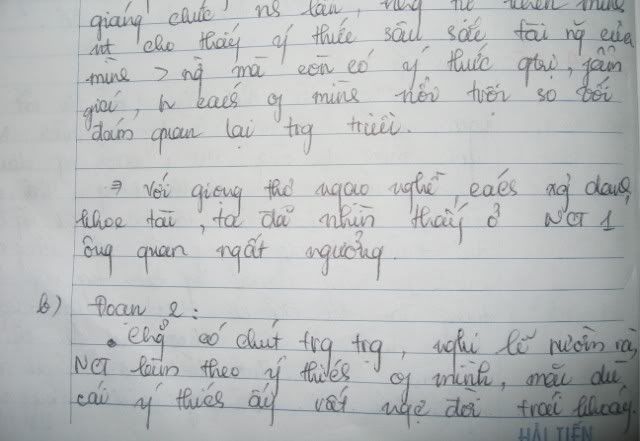 giáng chức, ns tấn,
nt cho thấy ý thức sâu sắc tài ng của
mình > ng mà còn có ý thức qtrị, phẩm
giá, n cách of mình nổi trội so với
đám quan lại trg triều.
=> Với giọng thơ ngạo nghễ, cách xg danh,
khoe tài, ta đã nhìn thấy ở NCT 1
ông quan ngất ngưởng.
b) Đoạn 2:
. chg có chút trg trg, nghi lễ rườm rà,
NCT làm theo ý thích of mình, mặc dù
cái ý thích ấy rất ngc đời trái khoáy.
HẢI TIẾN